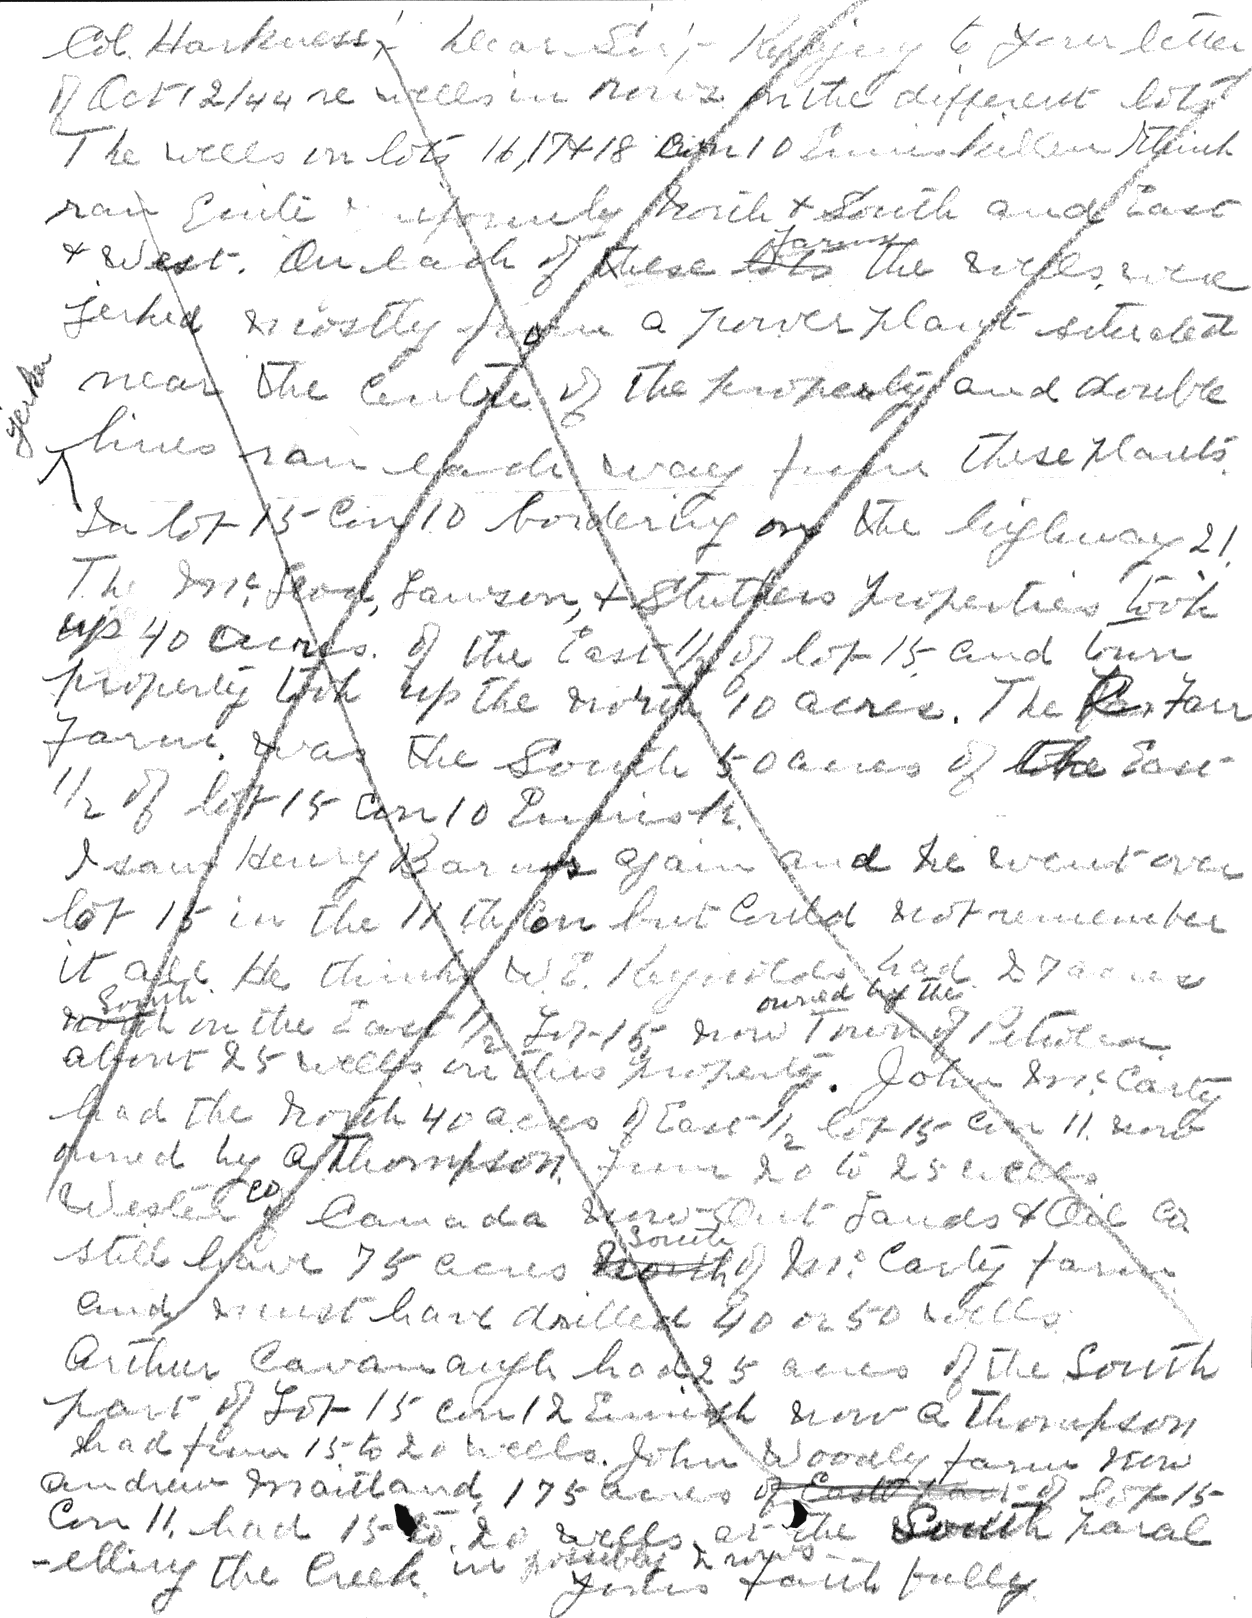 Col. Harkness,- Dear Sir,- Replying to your letter
of Oct 12/44 re wells in rows on the different lots
The wells on lots 16, 17 & 18 Con 10 Enniskillen I think
ran quite uniformly North & South and East
& West. On each of these lots farms the wells were
jerked mostly from a power plant situated
near the centre of the property and double
jerker
lines ran each way from these plants.
In lot 15 Con 10 bordering on the highway 21
The McLeod, Lawson, & Stuthers properties took
up 40 acres. of the East 1/2 of lot 15 and town
property took up the north 10 acres. The Farr
Farm. was the South 50 acres of the East
1/2 of lot 15 Con 10 Ennisk.
I saw Henry Barnes again and he went over
lot 15 in the 11 th Con but could not remember
it all. He thinks W.E. Reynolds had 27 acres
South
north on the East 1/2 Lot 15 now owned by the Town of Petrolea.
about 25 wells on this property. John McCarty
had the North 40 acres of East 1/2 lot 15 Con 11. now
owned by A Thompson. from 20 to 25 wells
Western Co of Canada now Ont Lands & Oil Co
still have 75 acres North South of Mc. Carty farm
and must have drilled 40 or 50 wells
Arthur Cavanaugh had 25 acres of the South
part of Lot 15 con 12 Ennisk now A Thompson
had from 15 to 20 wells. John Woodly farm now
Andrew Maitland, 175 acres of East part of lot 15
Con 11. had 15 to 20 wells at the South paral
-elling the Creek. in possibly 2 rows
Yours faithfully.